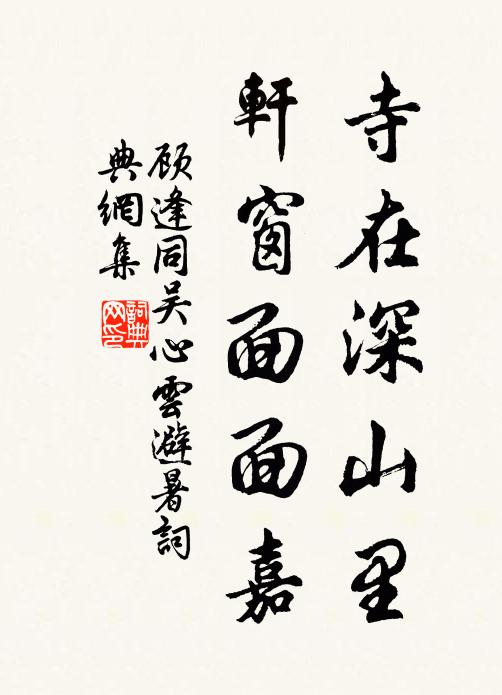 寺在深山里
軒窗面面嘉
顾逢同吴心雲避暑詞
典網集
詞典
网印